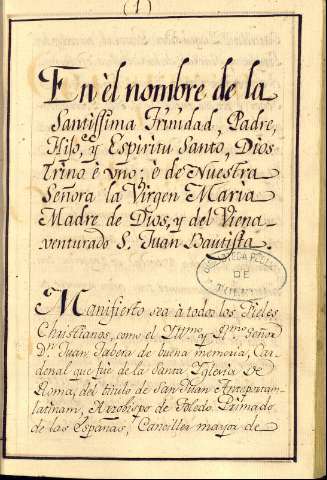 (1)
En èl nombre de la
Santissima Trinidad, Padre,
Hijo, y Espiritu Santo, Dios
trino è vno; è de Nuestra
Señora la Virgen Maria
Madre de Dios, y del Viena
venturado S. Juan Bautista.
BIBLIOTECA PUBLICA
DE
TOLEDO
Manifiesto sea à todos los Fieles
Christianos, como el Yttmo. y Rmo. Señor
Dn. Juan Tabera de buena memoria, Car-
denal que fuè de la Santa Yglesia de
Roma, del titulo de San Juan Anteportam
latinam, Arzobispo de Toledo Primado
de las Españas, Canciller mayor de